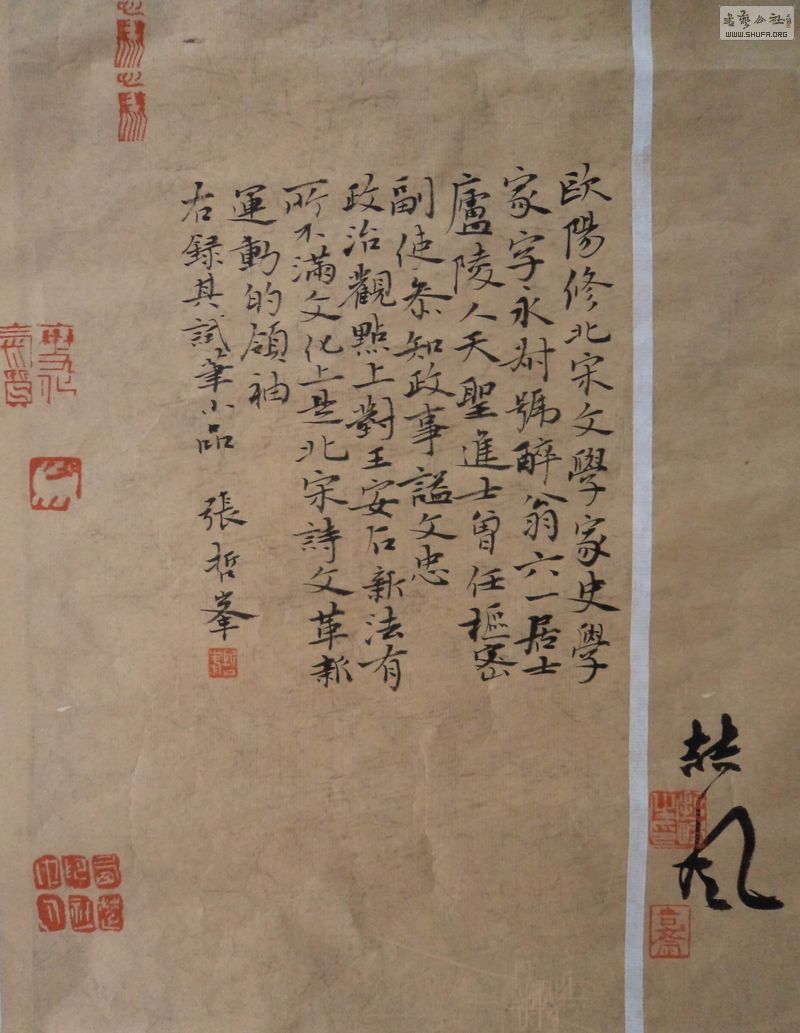 歐陽修北宋文學家史學
家字永叔號醉翁六一居士
廬陵人天聖進士曾任樞密
副使叅知政事謚文忠
政治觀點上對王安石新法有
所不滿文化上是北宋詩文革新
運動的領袖
右録其試筆小品 張哲峯
書藝公社
WWW.SHUFA.ORG